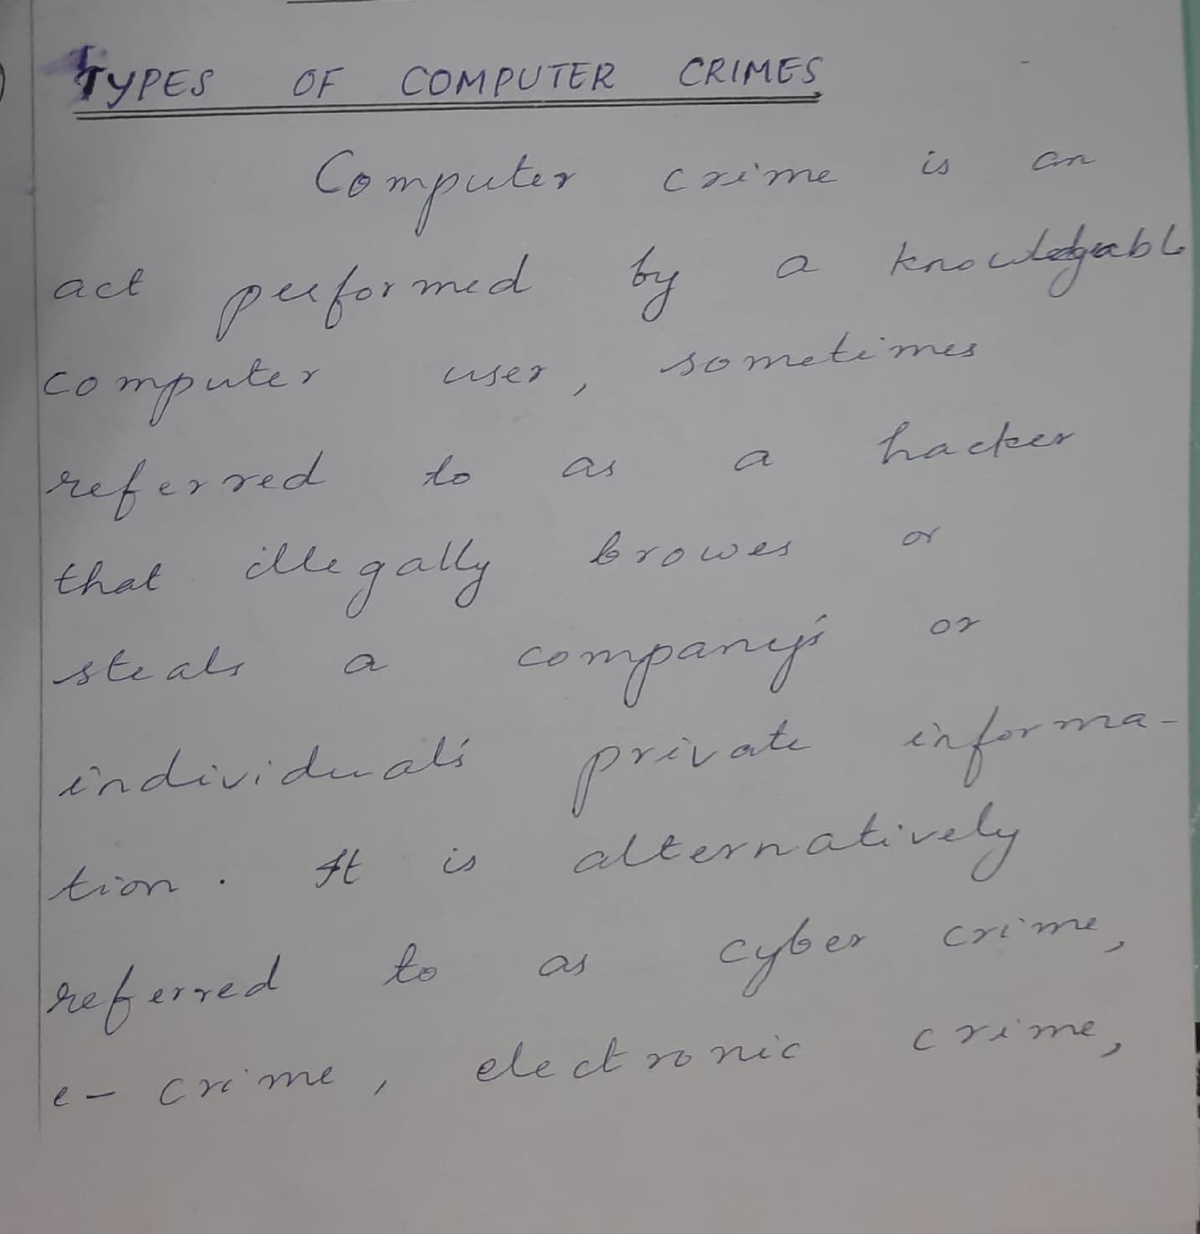 TYPES OF COMPUTER CRIMES
Computer crime is an
act performed by a knowledgeable
computer user, sometimes
referred to as a hacker
that illegally browes or
steals a company's or
individual's private informa-
tion. It is alternatively
referred to as cyber crime,
e- crime, electronic crime,